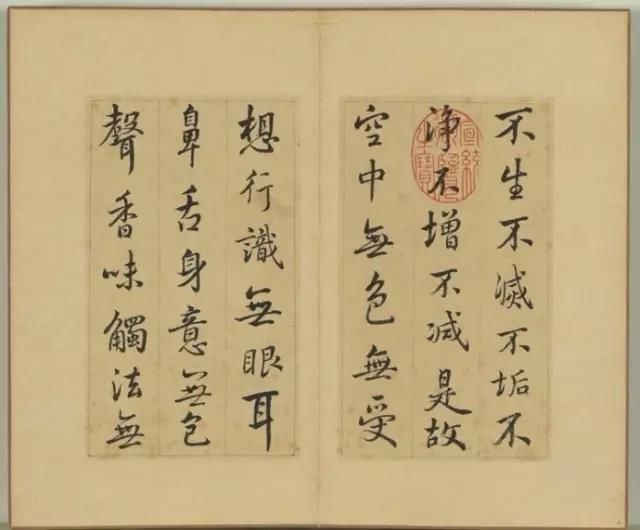 不生不滅不垢不
淨不增不减是故
空中無色無受
想行識無眼耳
鼻舌身意無色
聲香味觸法無
宣統御覽之寶